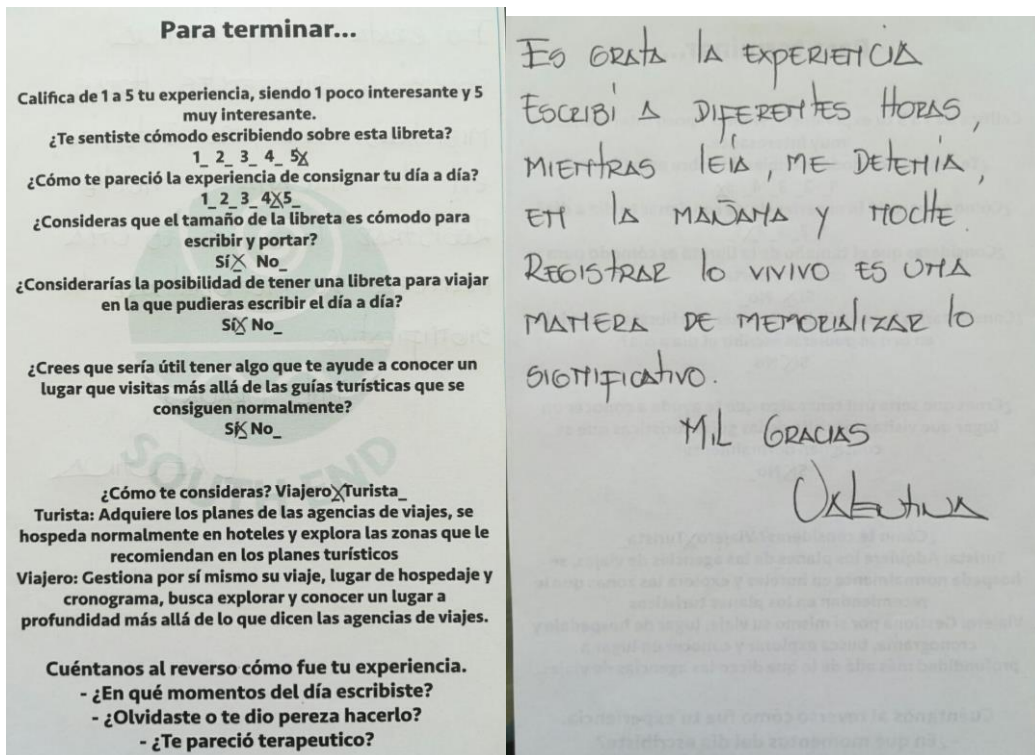 Para terminar...
Califica de 1 a 5 tu experiencia, siendo 1 poco interesante y 5
muy interesante.
¿Te sentiste cómodo escribiendo sobre esta libreta?
1_ 2_ 3_ 4_ 5X
¿Cómo te pareció la experiencia de consignar tu día a día?
1_2_3_4X5_
¿Consideras que el tamaño de la libreta es cómodo para
escribir y portar?
SíX No_
¿Considerarías la posibilidad de tener una libreta para viajar
en la que pudieras escribir el día a día?
SíX No_
¿Crees que sería útil tener algo que te ayude a conocer un
lugar que visitas más allá de las guías turísticas que se
consiguen normalmente?
SíX No_
SOUTH END
¿Cómo te consideras? ViajeroXTurista_
Turista: Adquiere los planes de las agencias de viajes, se
hospeda normalmente en hoteles y explora las zonas que le
recomiendan en los planes turísticos
Viajero: Gestiona por sí mismo su viaje, lugar de hospedaje y
cronograma, busca explorar y conocer un lugar a
profundidad más allá de lo que dicen las agencias de viajes.
Cuéntanos al reverso cómo fue tu experiencia.
- ¿En qué momentos del día escribiste?
- ¿Olvidaste o te dio pereza hacerlo?
- ¿Te pareció terapeutico?
Es grata la experiencia
Escribí a diferentes horas,
mientras leía, me detenía,
en la mañana y noche.
Registrar lo vivivo es una
manera de memorializar lo
significativo.
Mil gracias
Valentina